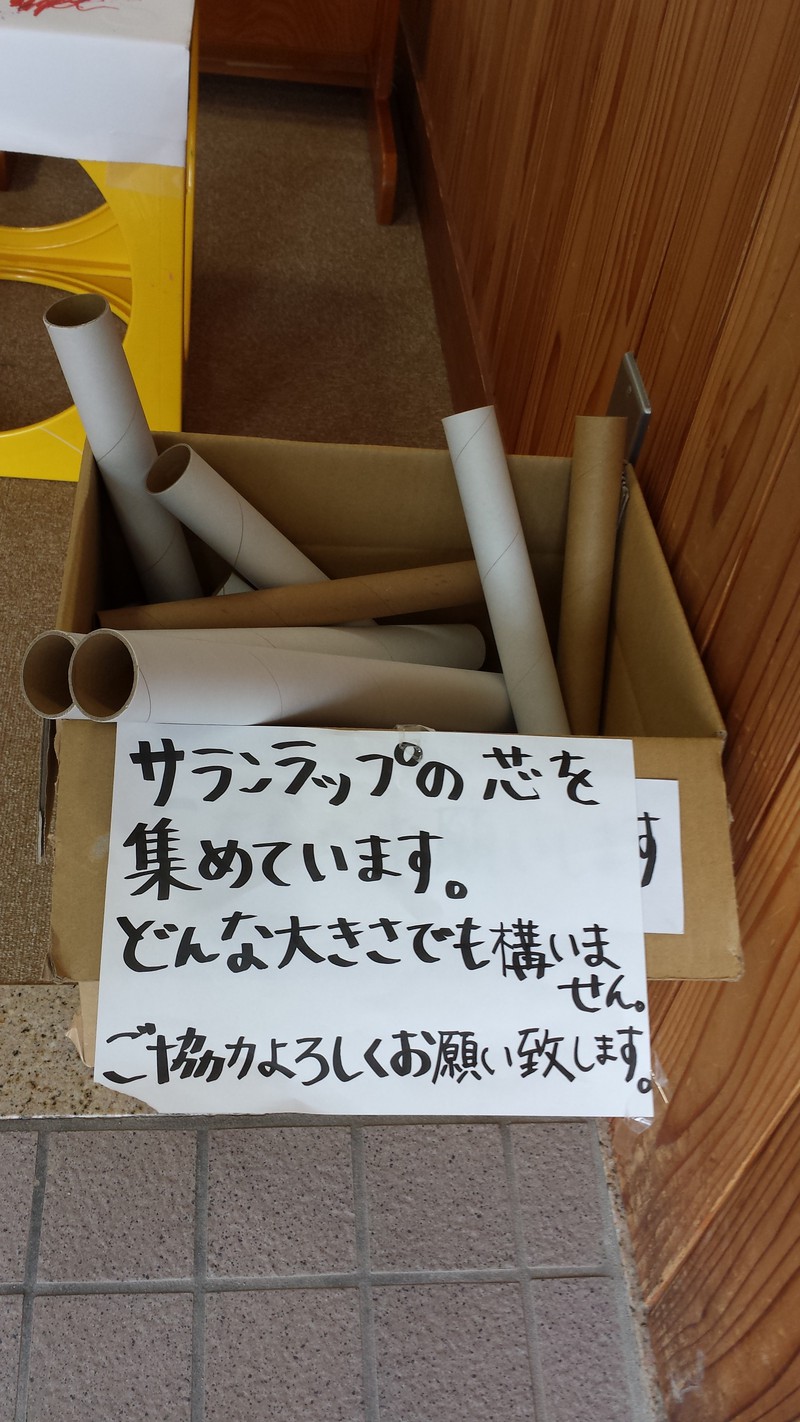 サランラップの芯を
集めています。
どんな大きさでも構いま
せん。
ご協力よろしくお願い致します。
す